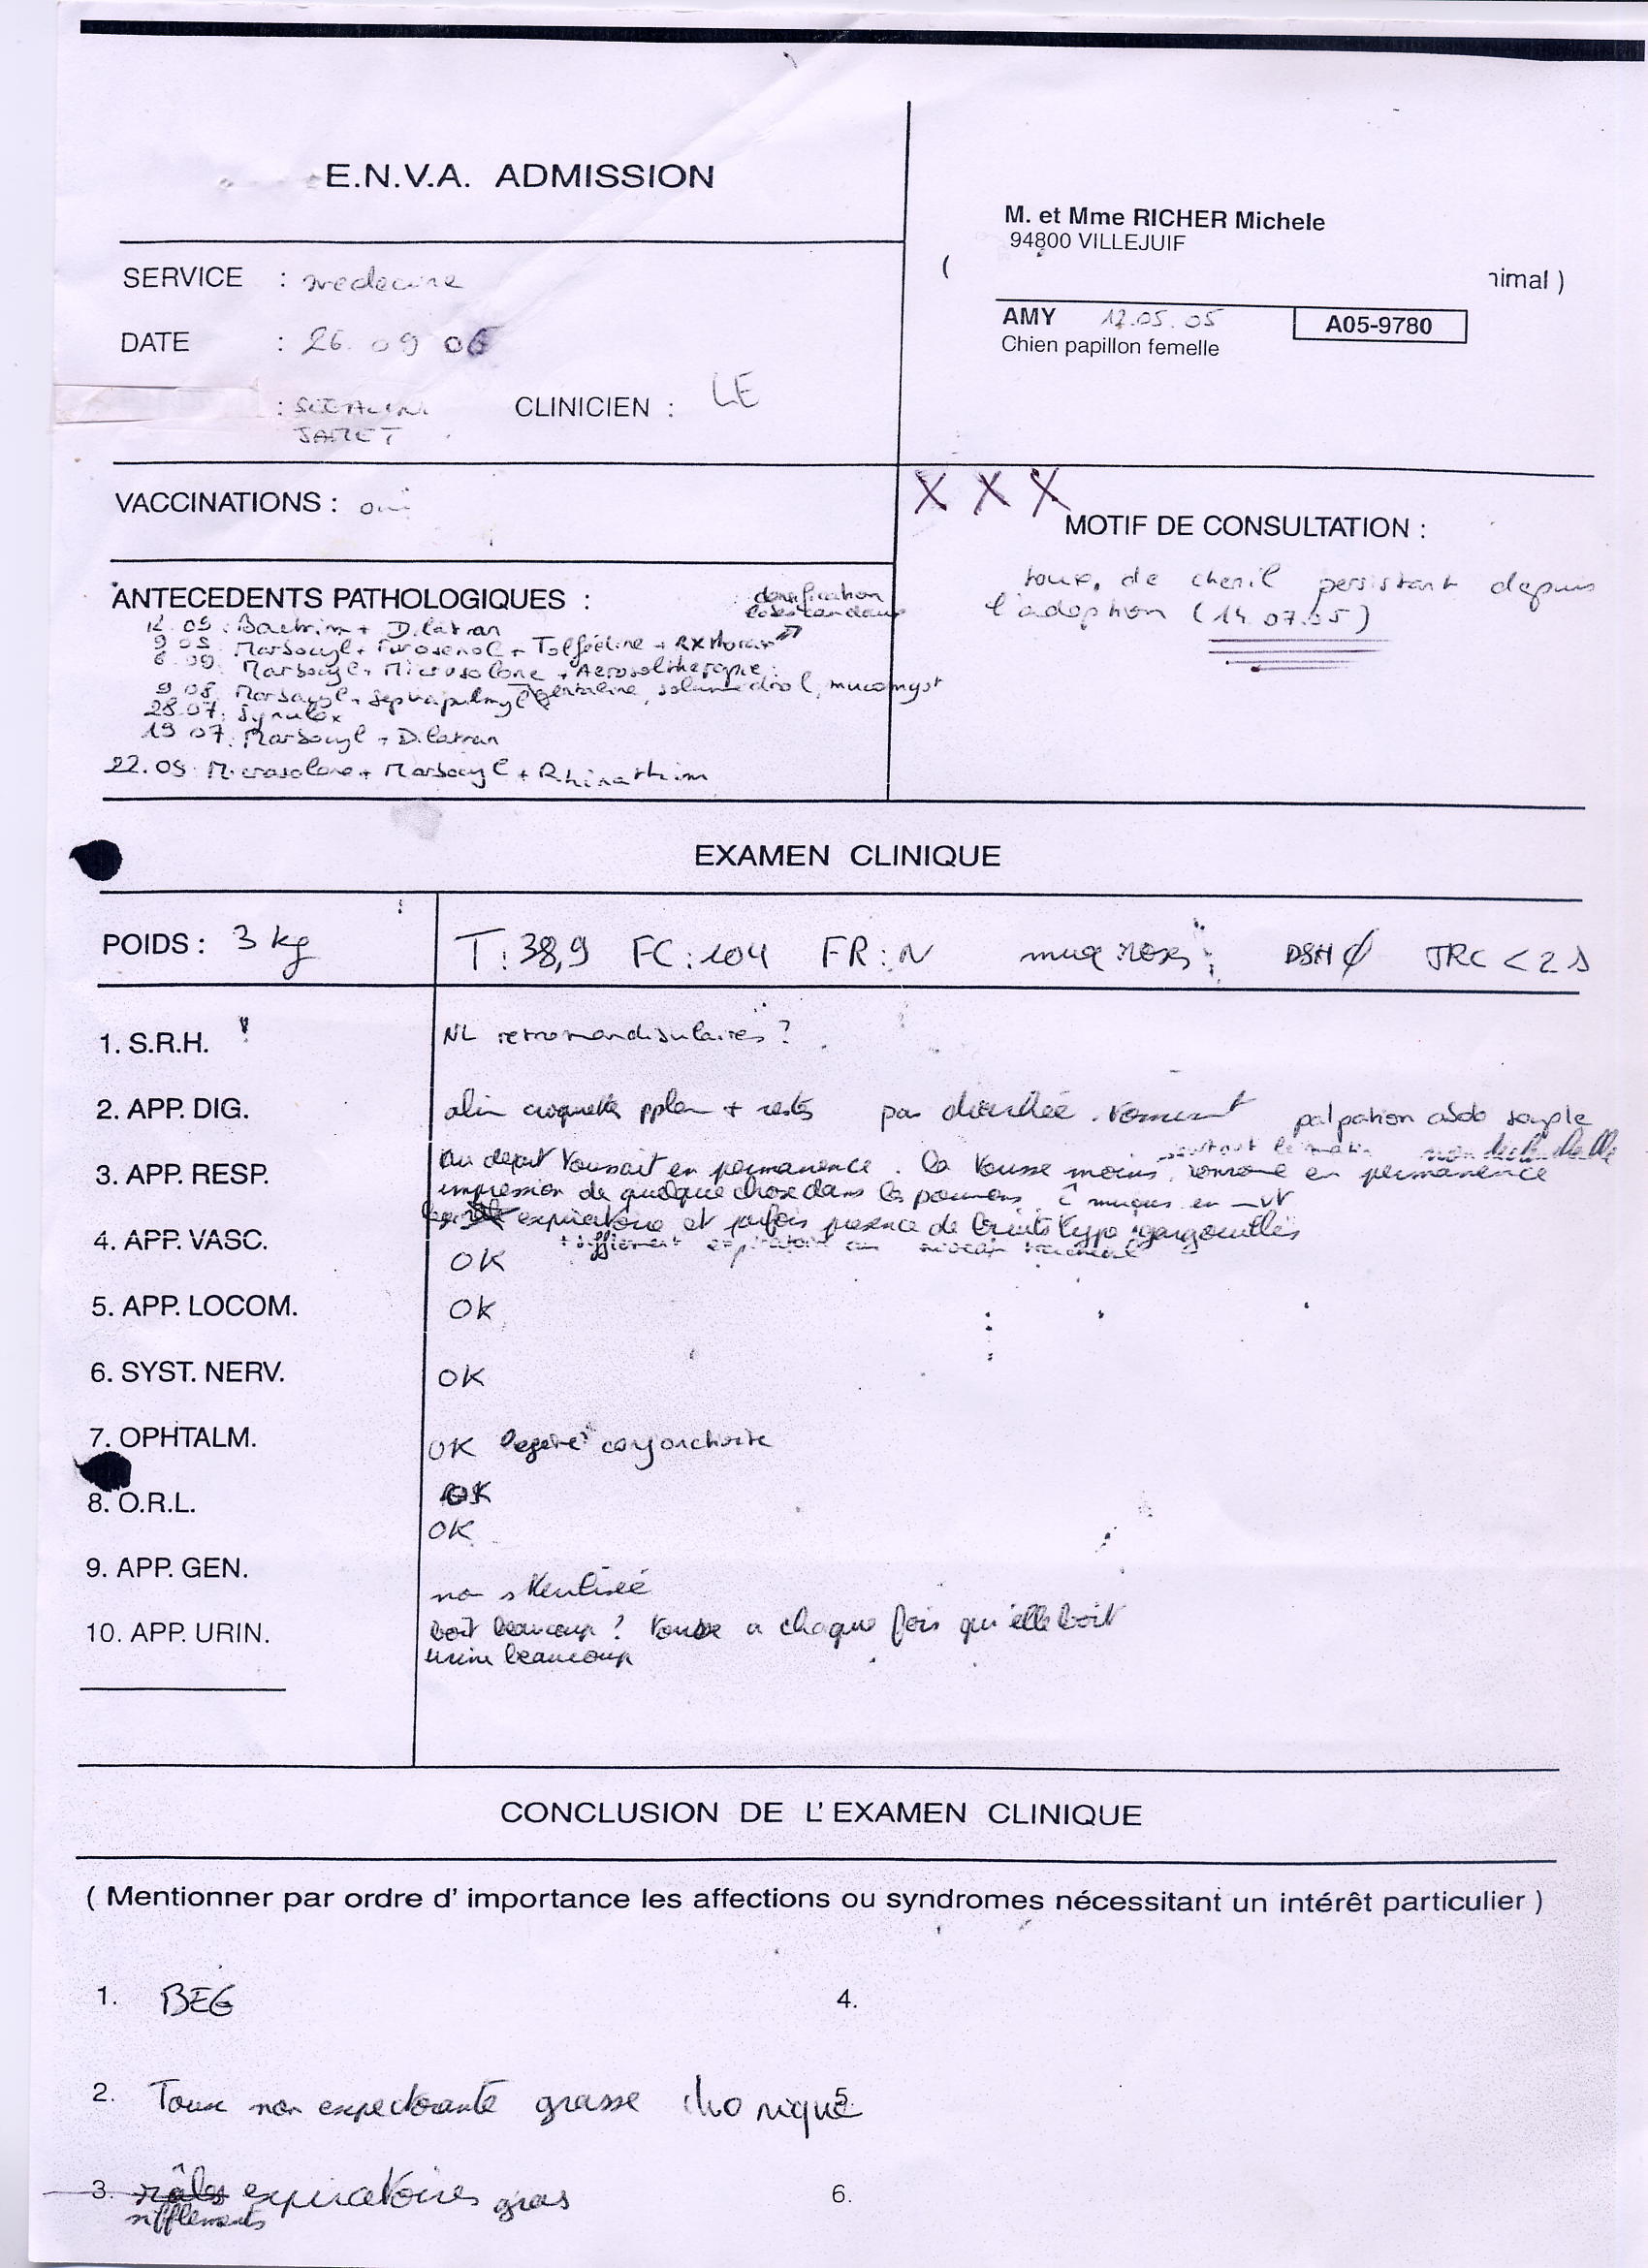 E.N.V.A. ADMISSION
M. et Mme RICHER Michele
94800 VILLEJUIF
( nimal )
SERVICE : medecine
AMY 12.05.05 A05-9780
Chien papillon femelle
DATE : 26.09 06
: CLINICIEN : LE
JAMET
VACCINATIONS : oui
X X X
MOTIF DE CONSULTATION :
toux de chenil persistant depuis
l'adoption (14.07.05)
ANTECEDENTS PATHOLOGIQUES :
12.09 : Bactrim + Dilatran
9 08 Marbocyl + Furosenol + Tolfédine + RX thorax
6.09. Marbocyl + Microsolone + Aerosoltherapie :
9 08. Marbocyl + Septrapulmyl gentaline, solumedrol, mucomyst
28.07. Synulox
19 07. Marbocyl + Dilatran
22.09. Microsolone + Marbocyl + Rhinathim
EXAMEN CLINIQUE
POIDS : 3 kg T : 38,9 FC : 104 FR : N muq roses DSH ∅ TRC < 2 s
1. S.R.H. NL retromandibulaires ?
2. APP. DIG. alim croquettes + restes pas diarrhée. palpation abdo souple
3. APP. RESP. Au départ toussait en permanence. la tousse moins, en permanence
surtout le matin
impression de quelque chose dans les poumons, muqus en
expiratoire et parfois presence de bruits type gargouillis
+ sifflement expiratoire au niveau tracheal
4. APP. VASC. OK
5. APP. LOCOM. OK
6. SYST. NERV. OK
7. OPHTALM. OK legere conjonctivite
8. O.R.L. OK
OK
9. APP. GEN. non sterilisée
10. APP. URIN. boit beaucoup ? tousse a chaque fois qu'elle boit
urine beaucoup
CONCLUSION DE L'EXAMEN CLINIQUE
( Mentionner par ordre d' importance les affections ou syndromes nécessitant un intérêt particulier )
1. BEG 4.
2. Toux non expectorante grasse chronique 5.
3. râles expiratoires gras 6.
sifflements